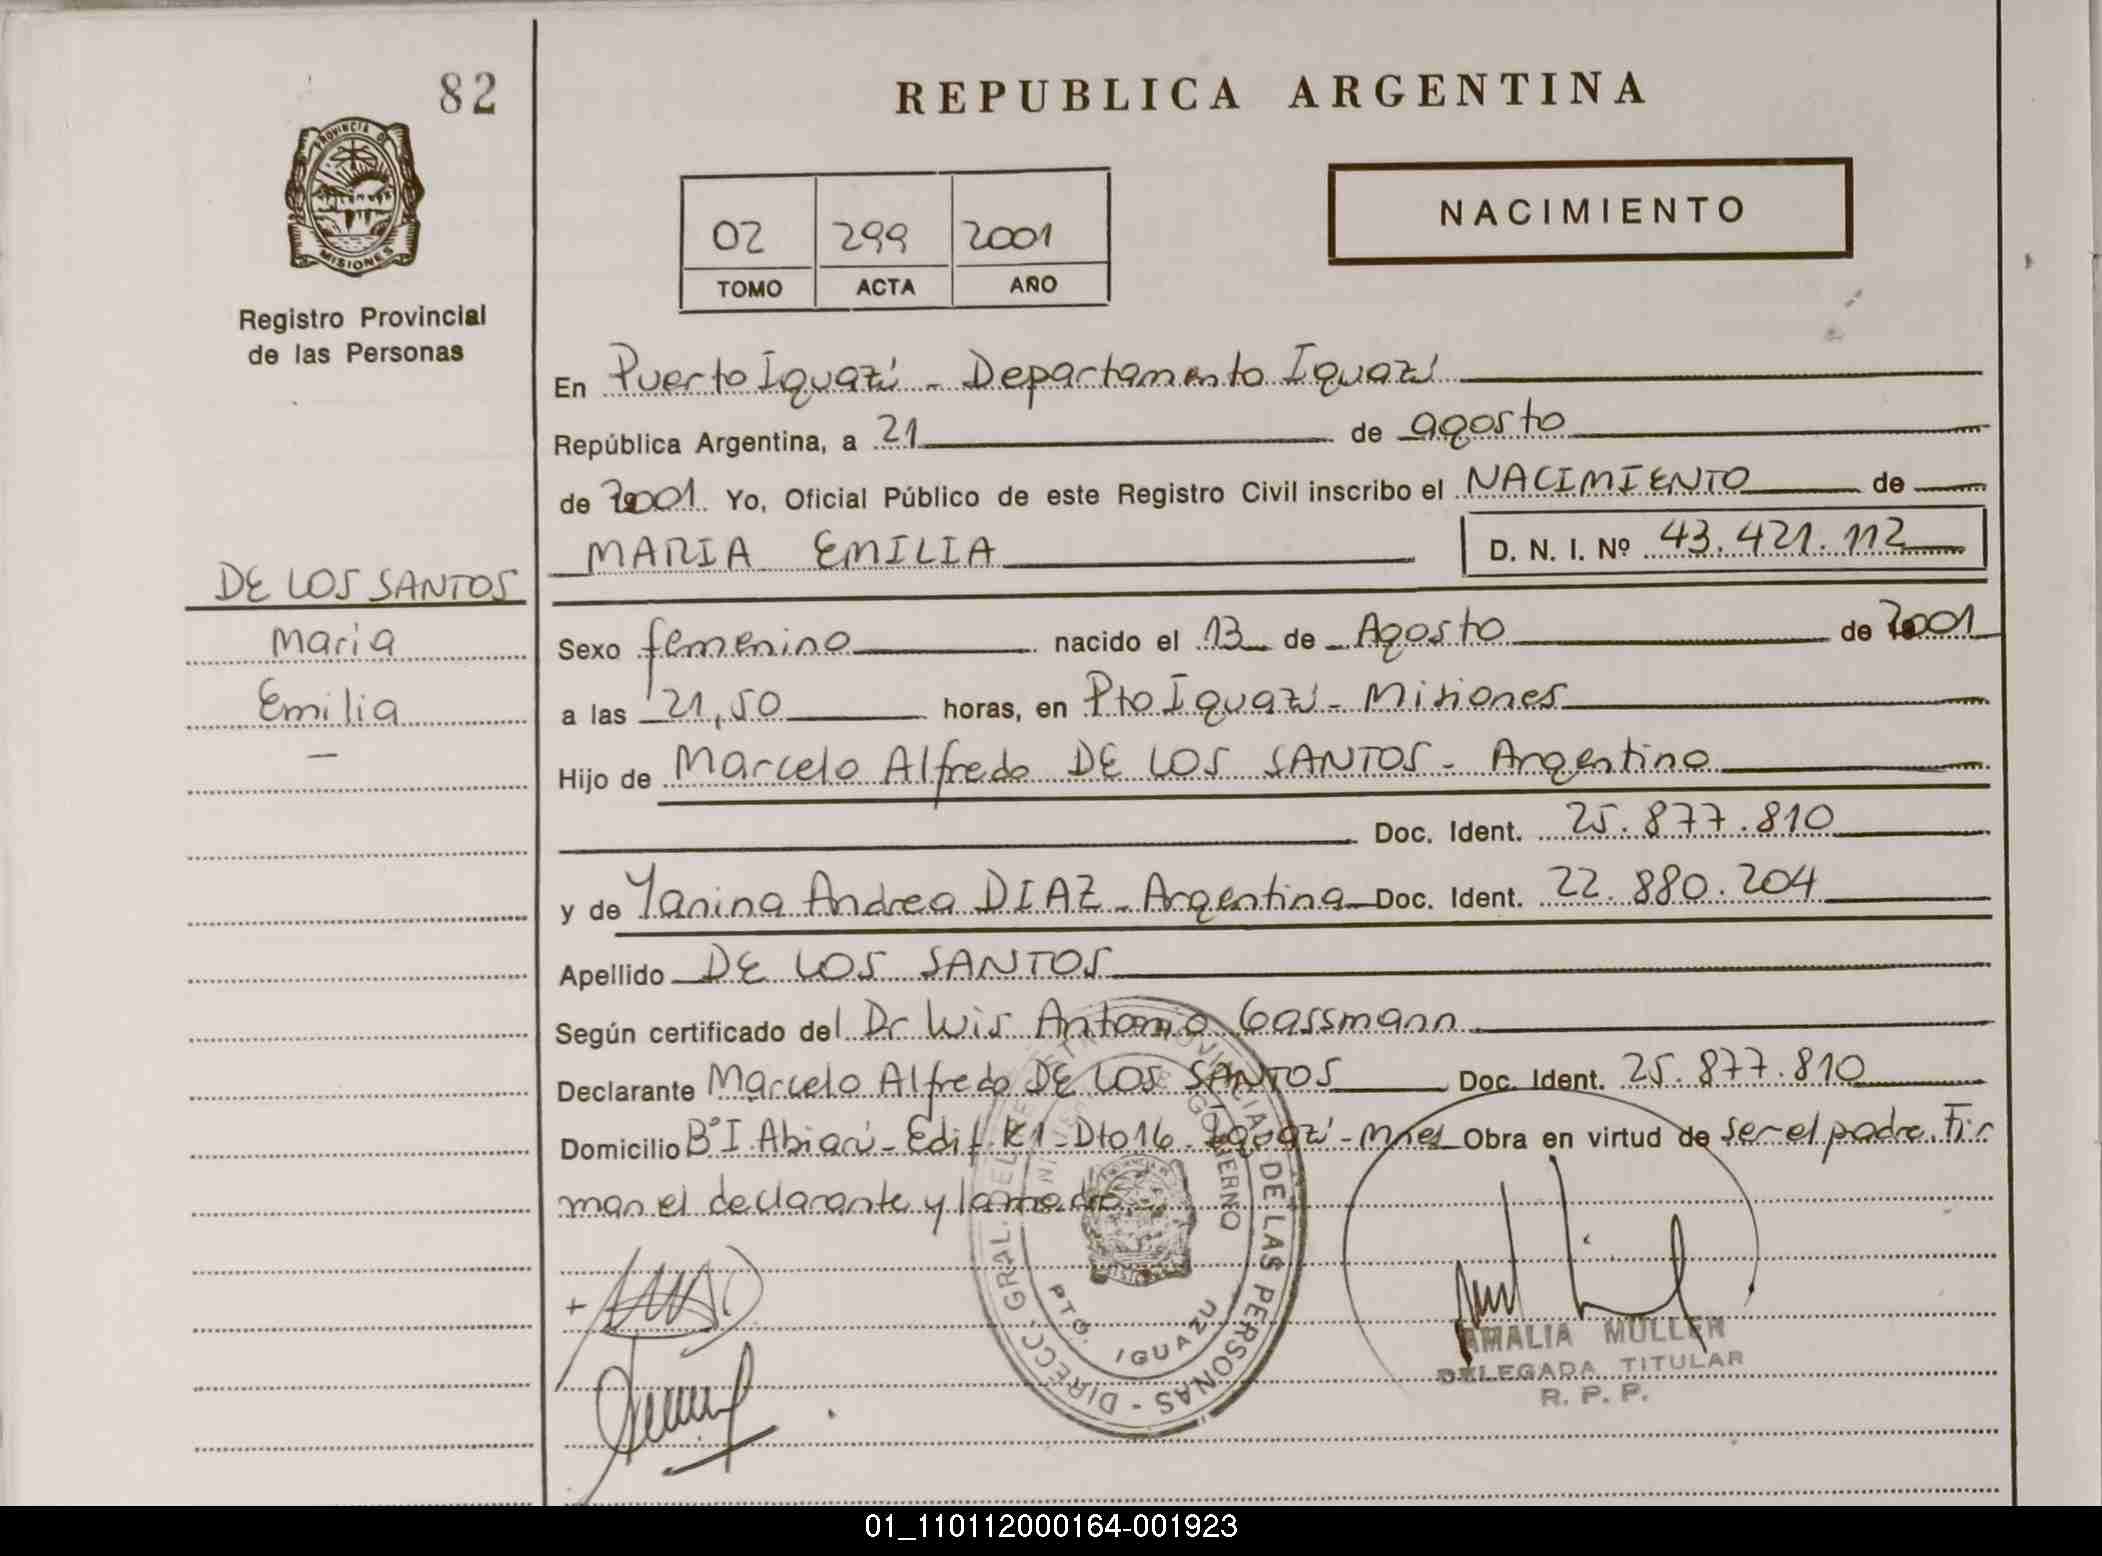 82
REPUBLICA ARGENTINA
PROVINCIA DE
MISIONES
Registro Provincial
de las Personas
02 299 2001
TOMO ACTA AÑO
NACIMIENTO
En Puerto Iguazú - Departamento Iguazú
República Argentina, a 21 de agosto
de 2001. Yo, Oficial Público de este Registro Civil inscribo el NACIMIENTO de
MARIA EMILIA D. N. I. Nº 43.421.112
DE LOS SANTOS
Maria
Emilia
Sexo femenino nacido el 13 de Agosto de 2001
a las 21,50 horas, en Pto Iguazú - Misiones
Hijo de Marcelo Alfredo DE LOS SANTOS - Argentino
Doc. Ident. 25.877.810
y de Yanina Andrea DIAZ - Argentina Doc. Ident. 22.880.204
Apellido DE LOS SANTOS
Según certificado del Dr Luis Antonio Gassmann
Declarante Marcelo Alfredo DE LOS SANTOS Doc. Ident. 25.877.810
Domicilio Bº I. Abiarú - Edif. K1 - Dto 16 - Iguazú - Mnes Obra en virtud de ser el padre. Fir
man el declarante y la madre
DIRECC. GRAL. DEL PROVINCIAL DE LAS PERSONAS
GOBIERNO
PTO. IGUAZU
AMALIA MULLER
DELEGADA TITULAR
R. P. P.
01_110112000164-001923